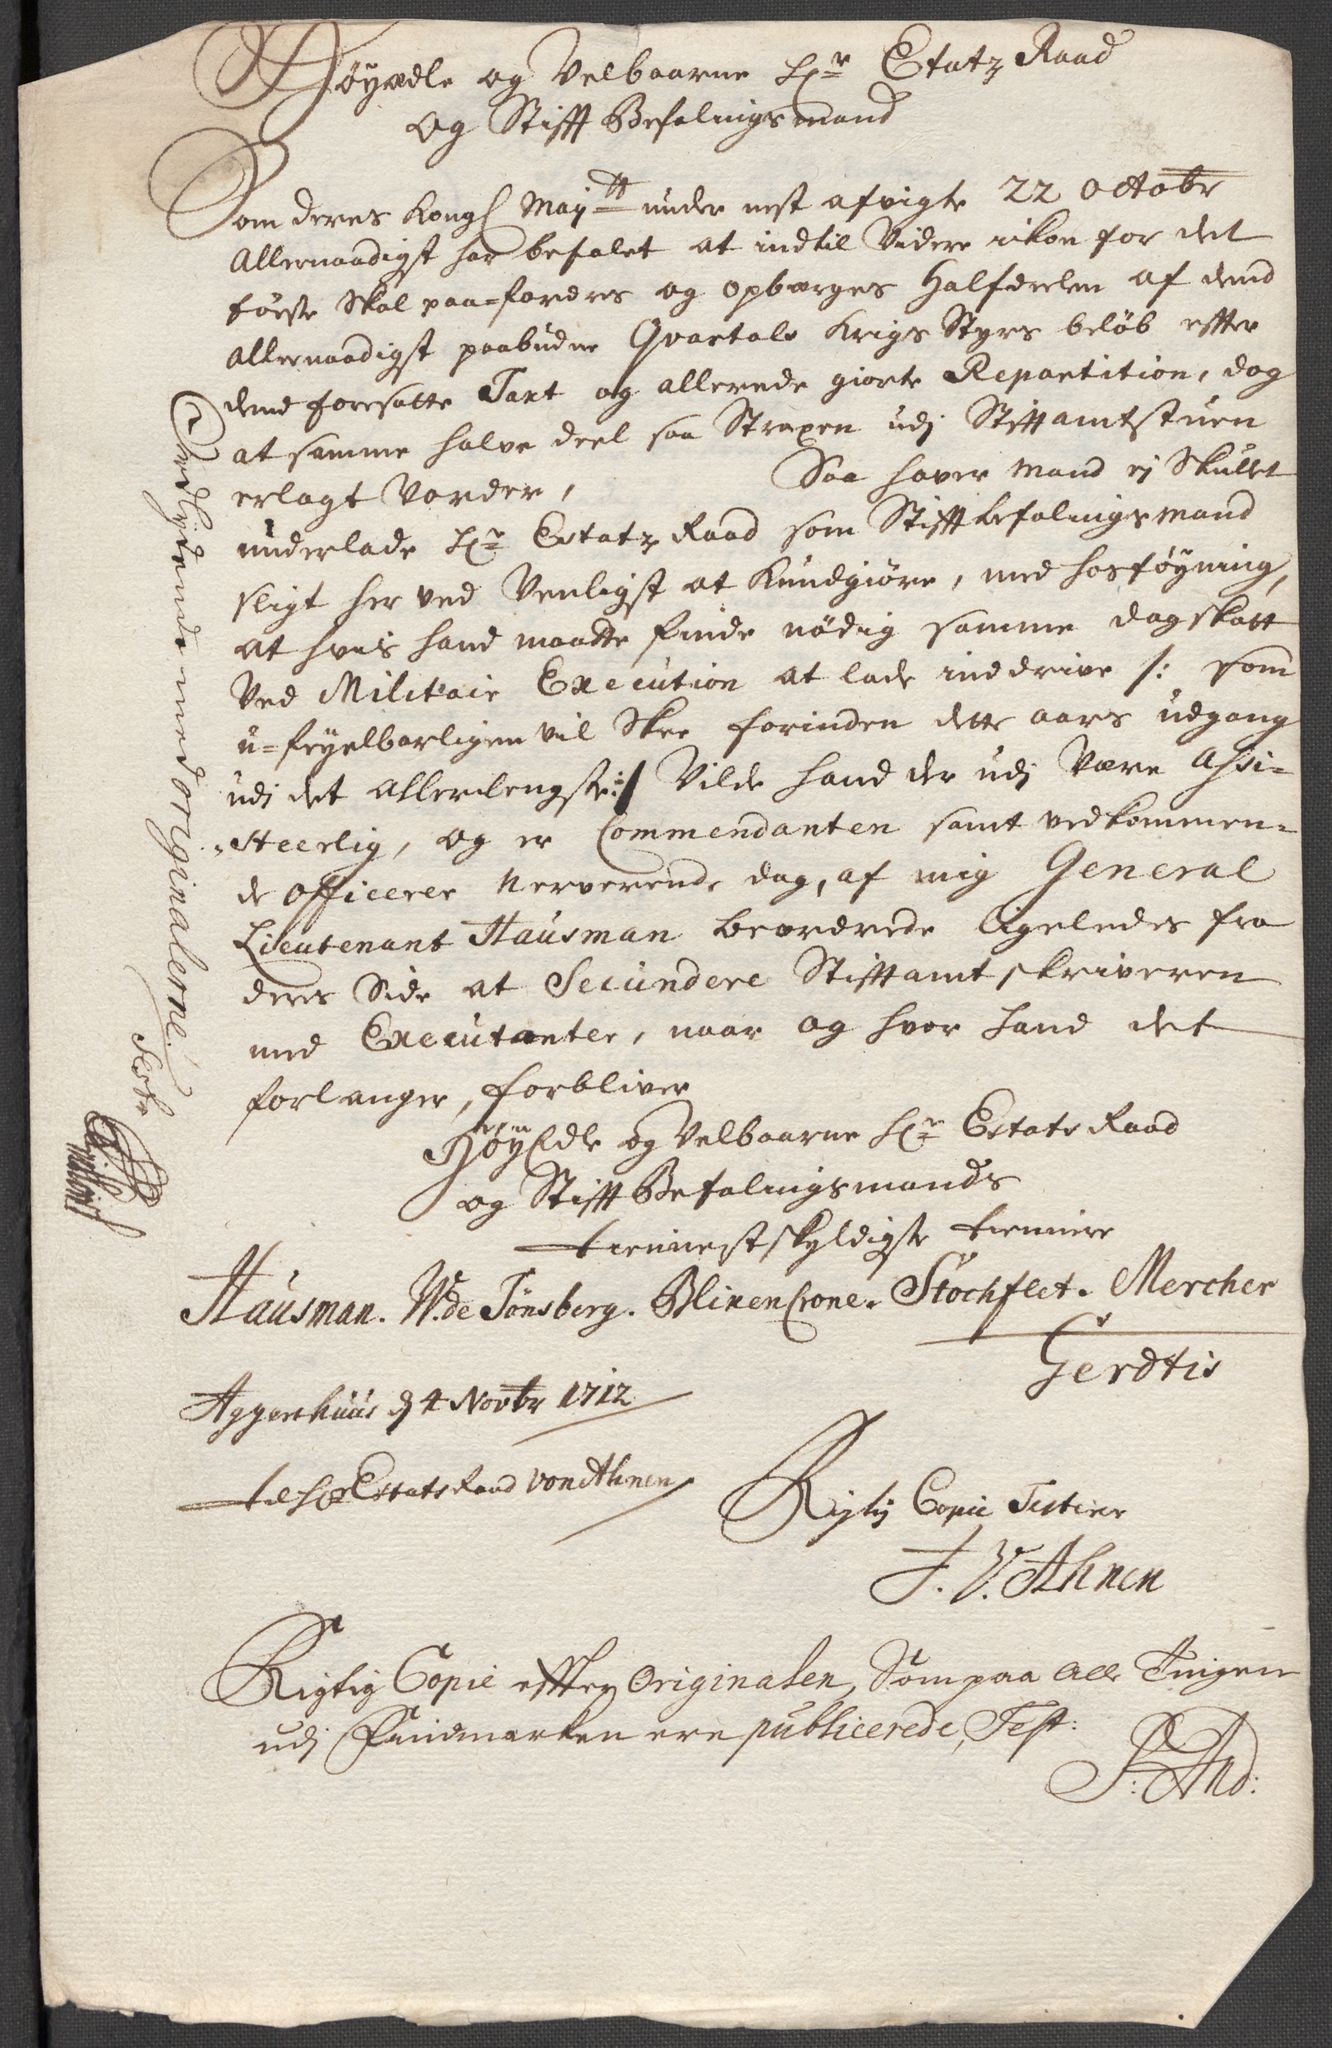 Höyædle og Velbaarne Hr Etatz Raad
og Stifft Befalingsmand
Som deres Kongl May.tt under nest afvigte 22 Octobr
allernaadigst har befalet at indtil Videre ickon for det
første Skal paa-fordres og opbærges Halfdeelen af dend
allernaadigst paabudne Qvartals Krigs Styrs beløb effter
dend foresatte Taxt og allerede giorte Repartition, dog
at samme halve deel saa Straxen udj Stiftamtstuen
erlagt Vorder, Saa haver mand ej Skullet
underlade Hr Estatz Raad som Stifftbefalingsmand
sligt her ved Venligst at Kundgiøre, med hosføyning,
at hvis hand maatte finde nödig samme dagskatt
Ved Militair Execution at lade inddrive /: som
u-feyelbarligen vil Skee forinden dette aars udgang
udj det allerlengste :/ Vilde hand der udj Være Assi-
steerlig, og er Commendanten samt vedkommen-
de Officerer Nerverende dag, af mig General
Lieutenant Hausman beordrede ligeledes fra
deres Side at Secundere Stifftamtskriveren
med Executanter, naar og hvor hand det
forlanger, forbliver
HöyEdle og Velbaarne Hr Estats Raad
og Stifft Befalingsmands
tiennestskyldigste tiennere
Hausman. W. de Tönsberg. BlixenCrone. Stochflet. Mercher
Gerdtis
Aggershuus d 4 Novbr 1712
til Hr Estats Raad von Ahnen
Rigtig Copie Testerer
F. V. Ahnen
Rigtig Copie effter Originalen, Som paa alle Tingen
udj Findmarken ere publicerede, Test:
S: And:
Ved lydende med originalerne.